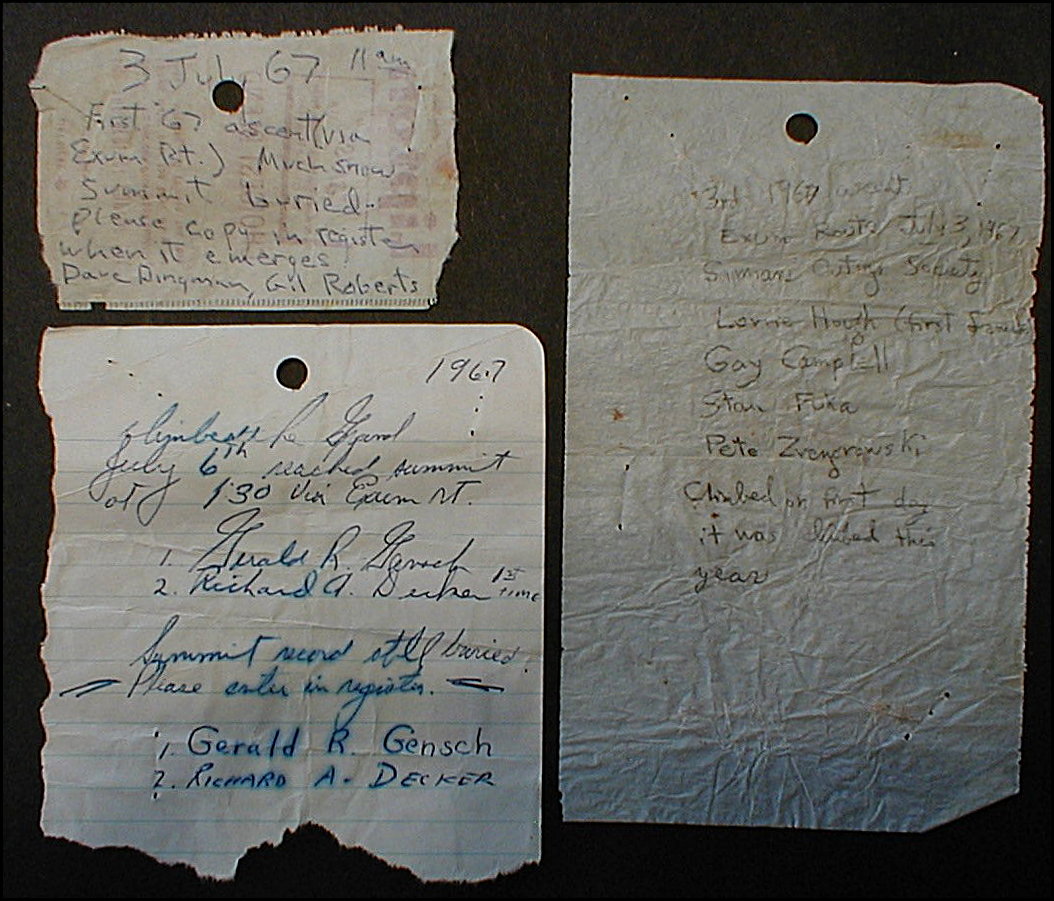 3 July 67 11am
First '67 ascent (via
Exum Rt.) Much snow
Summit buried.
Please copy in register
when it emerges
Dave Dingman, Gil Roberts
1967
July 6th reached summit
at 1:30 via Exum rt.
1. Gerald R. Gensch
2. Richard A. Decker 1st time
Summit record still buried.
Please enter in register.
1. Gerald R. Gensch
2. RICHARD A. DECKER
3rd 1967 ascent
Exum Route July 3, 1967
Outings Society
Lorrie Hough (first female)
Gay Campbell
Stan Fuka
Pete Zvengrowski
Climbed on first day
it was climbed this
year